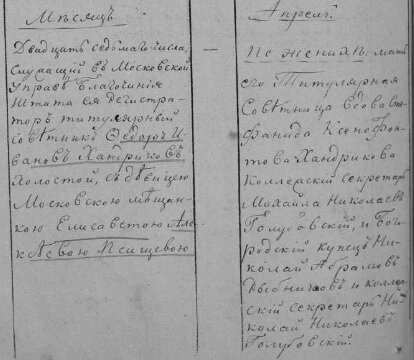 Мѣсяцъ
Двадцать седьмаго числа,
Служащій въ Московской
Управѣ Благочинія
Штата ея Регистра-
торъ титулярный
совѣтникъ Ѳедоръ И-
вановъ Хандриковъ
холостой, съ дѣвицею
Московскою мѣщан-
кою Елисаветою Але-
ксѣевою Псищевою
Апрель.
По женихѣ: мать
его Титулярная
Совѣтница вдова
Фанида Ксенофон-
това Хандрикова
Коллежскій Секретарь
Михайла Николаевъ
Голубовскій, и Бого-
родскій купецъ Ни-
колай Абрамовъ
Рыбниковъ и коллеж-
скій секретарь Ни-
колай Николаевъ
Голубовскій.